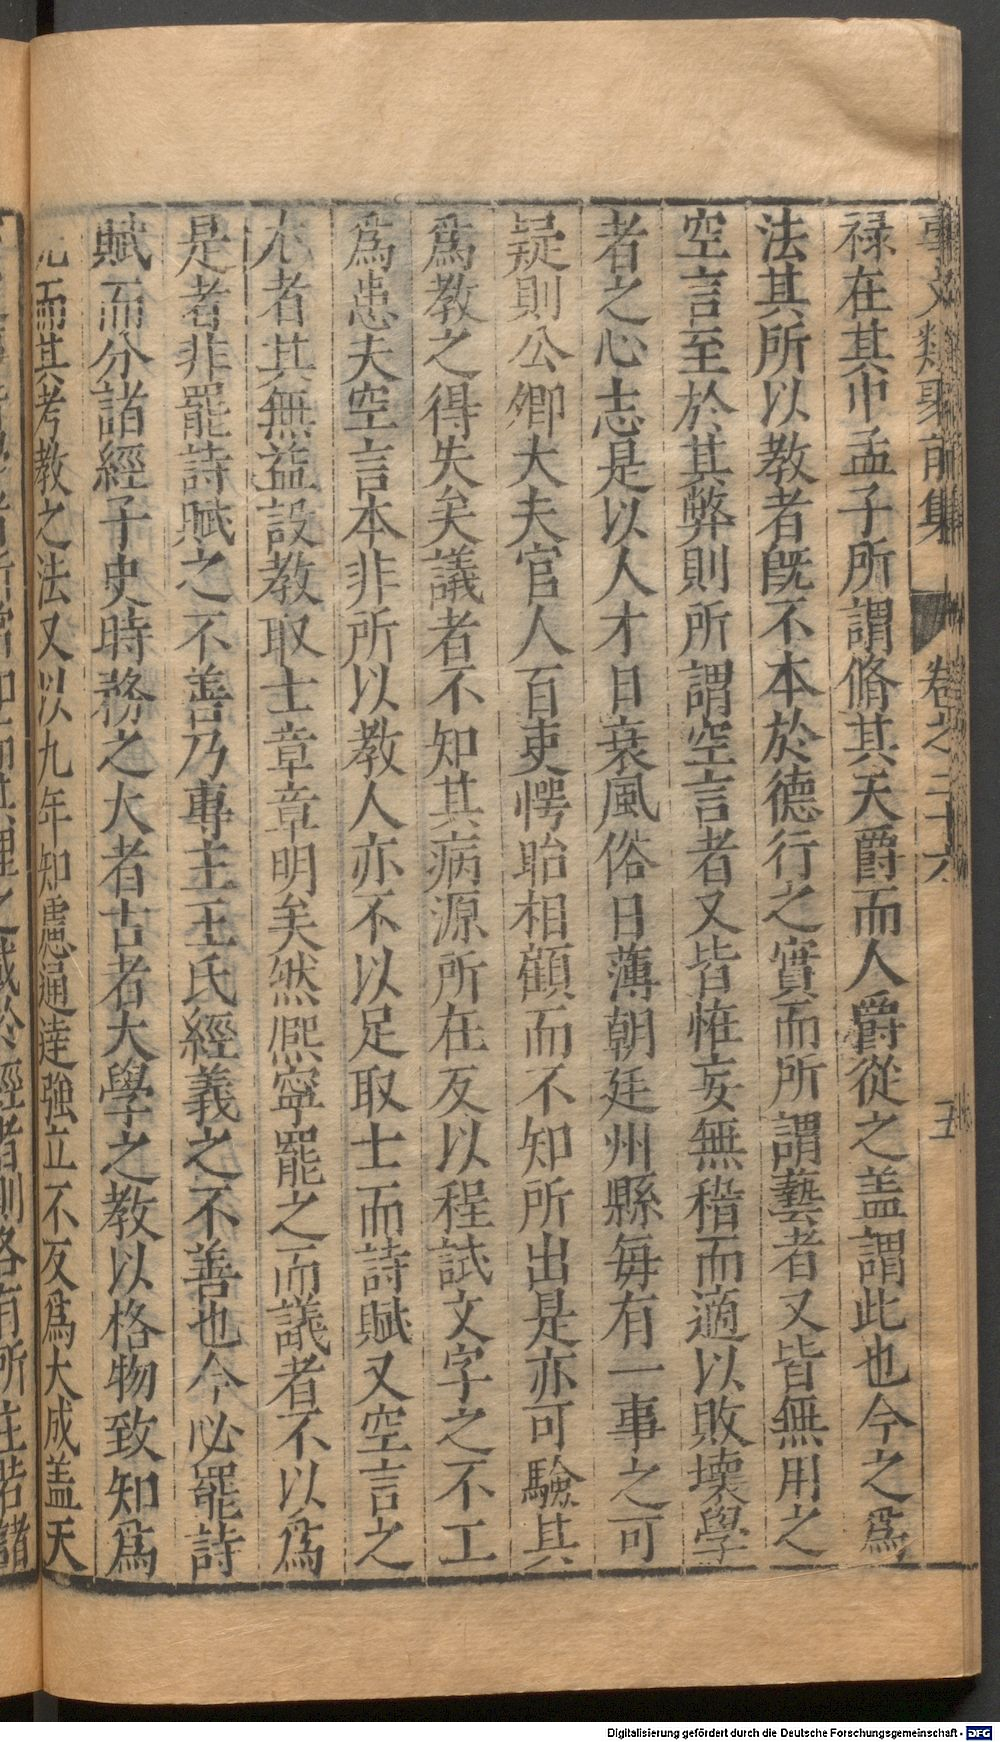 事文類聚前集 卷之二十六 五
禄在其中孟子所謂脩其天爵而人爵從之盖謂此也今之爲
法其所以教者旣不本於德行之實而所謂藝者又皆無用之
空言至於其弊則所謂空言者又皆恠妄無稽而適以敗壞學
者之心志是以人才日衰風俗日薄朝廷州縣每有一事之可
疑則公卿大夫官人百吏愕眙相顧而不知所出是亦可驗其
爲教之得失矣議者不知其病源所在反以程試文字之不工
爲患夫空言本非所以教人亦不以足取士而詩賦又空言之
尤者其無益設教取士章章明矣然熈寧罷之而議者不以爲
是者非罷詩賦之不善乃專主王氏經義之不善也今必罷詩
賦而分諸經子史時務之大者古者大學之教以格物致知爲
先而其考教之法又以九年知慮通達強立不反爲大成盖天
Digitalisierung gefördert durch die Deutsche Forschungsgemeinschaft - DFG